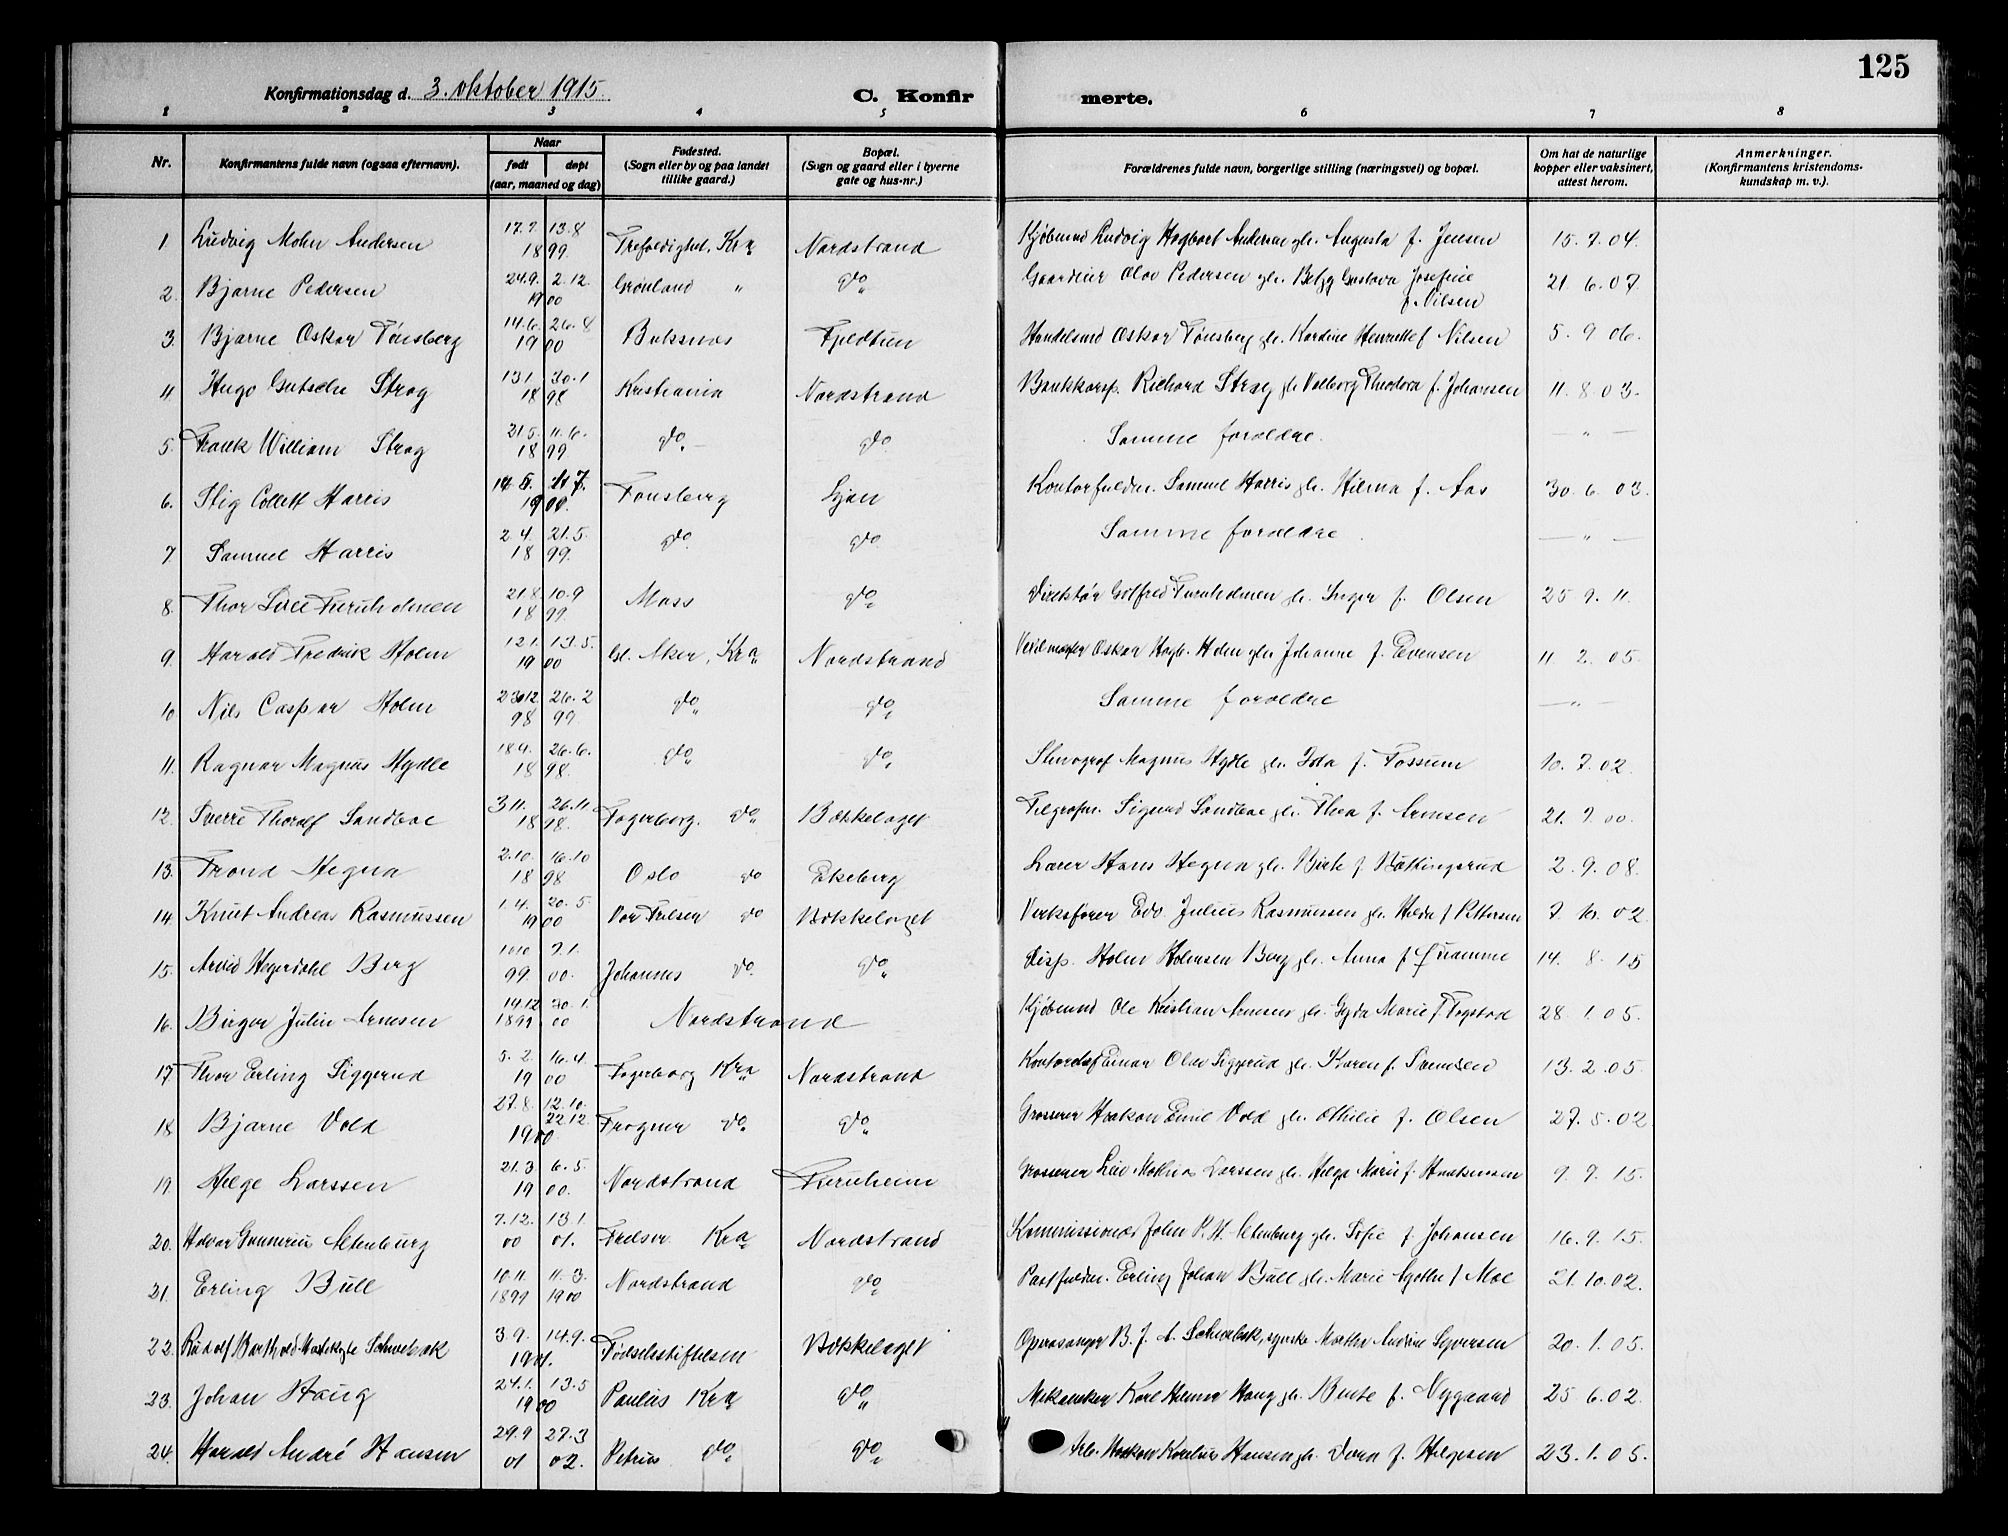 125
Konfirmationsdag d. 3. oktober 1915. C. Konfirmerte.
1 2 3 4 5 6 7 8
Nr. | Konfirmantens fulde navn (ogsaa efternavn). | Naar født døpt (aar, maaned og dag) | Fødested. (Sogn eller by og paa landet tillike gaard.) | Bopæl. (Sogn og gaard eller i byerne gate og hus-nr.) | Forældrenes fulde navn, borgerlige stilling (næringsvei) og bopæl. | Om hat de naturlige kopper eller vaksinert, attest herom. | Anmerkninger. (Konfirmantens kristendomskundskap m. v.).
1. Ludvig Mohn Andersen 17.7. 13.8 1899 Trefoldighet, Kra Nordstrand Kjøbmand Ludvig Hagbart Andersen gh. Augusta f. Jensen 15.7.04.
2. Bjarne Pedersen 24.9. 2.12. 1900 Grønland " do Gaardeier Olav Pedersen gh. Betzy Gustava Josefine f. Nilsen 21.6.07
3. Bjarne Oskar Tønsberg 14.6. 26.8 1900 Buksnes Fjeldtun Handelsmd Oskar Tønsberg gh. Kardine Henriette f Nilsen 5.9.06.
4. Hugo Gutsche Strøg 13.1. 30.1 1898 Kristiania Nordstrand Bankkasp. Richard Strøg gh Valborg Theodora f. Johansen 11.8.03.
5. Frank William Strøg 21.5. 11.6. 1899 do do Samme foreldre. — " —
6. Stig Collett Harris 14.5. 11.7. 1900. Tønsberg Ljan Kontorfuldm. Samuel Harris gh. Hilma f. Aas 30.6.03.
7. Samuel Harris 2.4. 21.5. 1899. do do Samme foreldre. — " —
8. Thor Furuholmen 21.8. 10.9 1899. Moss do Direktør Gotfred Furuholmen gh. Inga f. Olsen 25.9.11.
9. Harald Fredrik Holm 12.1. 13.5. 1900 Gl. Aker, Kra Nordstrand Oskar Hagb. Holm gh. Johanne f. Evensen 11.2.05.
10 Nils Caspar Holm 23.12. 26.2 98 99. do do Samme foreldre — " —
11. Ragnar Magnus Hydle 18.4. 26.6. 1898. do do Stenograf Magnus Hydle gh. Ida f. Fossum 10.7.02.
12. Sverre Thoralf Sandboe 3.11. 26.11 1898. Fagerborg. do Bækkelaget Telegrafm. Sigurd Sandboe gh. Thea f. Arnesen 21.7.00.
13. Trond Hegna 2.10. 16.10 1898 Oslo do Ekeberg Lærer Hans Hegna gh. Birte f 2.9.08.
14. Knut Andreas Rasmussen 1.4. 20.5. 1900 Vor Frelser do Bækkelaget Verksfører Edv. Julius Rasmussen gh. Hilda f Pettersen 7.10.02
15. Arvid Hegerdahl Berg 10.10 7.1. 99. 00. Johannes do. do Disp. Holm Holmsen Berg gh. Anna f Qvamme 14.8.15
16. Birger Julin Arnesen 19.12 20.1. 1899 00 Nordstrand Kjøbmand Ole Kristian Arnesen gh. Gyda Marie f Fogstad 28.1.05.
17. Thor Erling Siggerud 5.2. 16.4. 1900 Fagerborg Kra Nordstrand Kontorchef Einar Olav Siggerud gh. Karen f. Svendsen 13.2.05.
18 Bjarne Vold 27.8. 12.10. 22.12. 1900 Frogner do do Grosserer Haakon Emil Vold gh. Othilie f. Olsen 27.5.02
19. Helge Larssen 21.3 6.5. 1900. Nordstrand Furuheim Grosserer Mathias Larssen gh. Helga Marie f. Haakonsen 9.7.15.
20. Halvor Gunnerius Altenburg 7.12. 13.1. 00 01. Frelser Kra Nordstrand Kommissionær John P. H. Altenburg gh. Sofie f Johansen 16.9.15.
21. Erling Bull 10.11. 11.3. 1899 1900 Nordstrand do Postfuldm. Erling Johan Bull gh. Marie Agathe f Moe 21.10.02.
22. Rudolf Barthold Schwebak 3.9. 14.9. 1901. Fødselsstiftelsen Bækkelaget Operasanger B. J. A. Schwebak, Martha Andrine Syversen 20.1.05.
23. Johan Haug 24.1. 13.5 1900 Paulus Kra do Mekaniker Karl Helmer Haug gh. Birte f. Nygaard 25.6.02.
24. Harald André Hansen 29.9 27.3 01 02. Petrus do do Arb. Haakon Kornelius Hansen gh. Dora f. Helgesen 23.1.05.